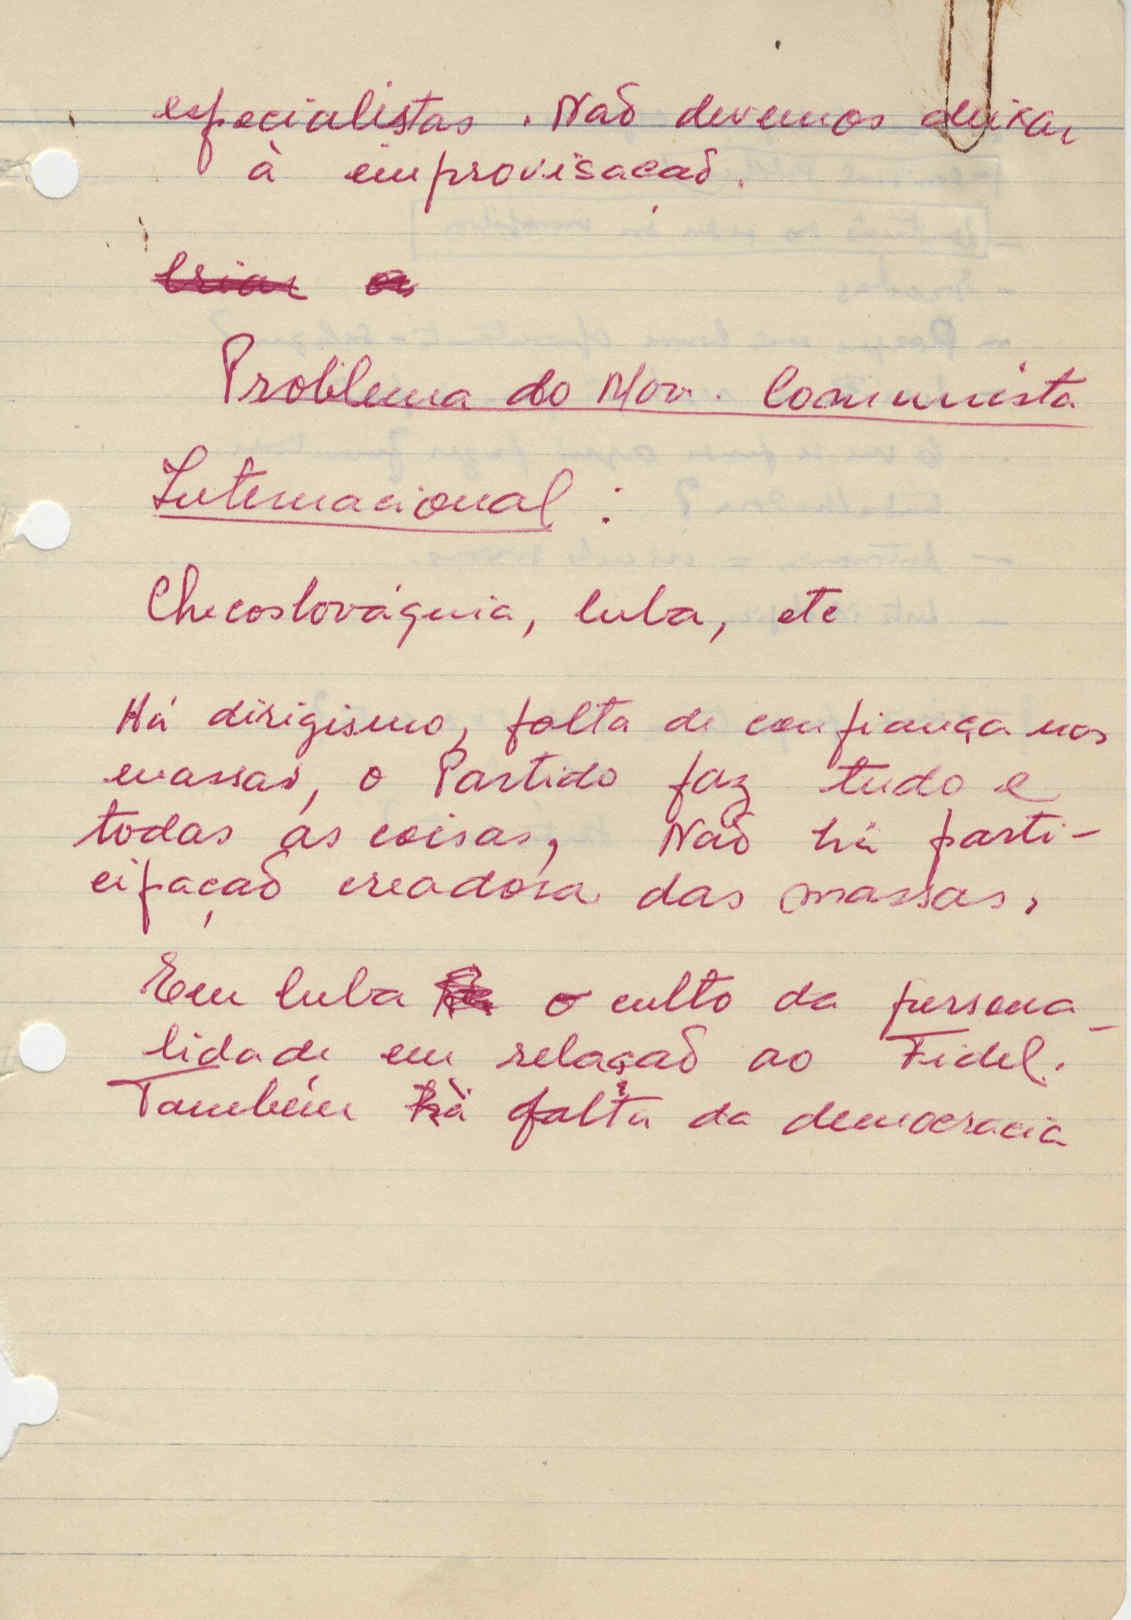 especialistas. Naõ devemos deixar
à improvisacaõ.
Criar as
Problema do Mov. Comunista
Internacional :
Checoslováquia, Cuba, etc
Há dirigismo, falta de confiança nas
massas, o Partido faz tudo e
todas as coisas, Naõ há parti-
cipaçaõ creadora das massas,
Em Cuba o culto da persona-
lidade em relaçaõ ao Fidel.
Também há falta da democracia